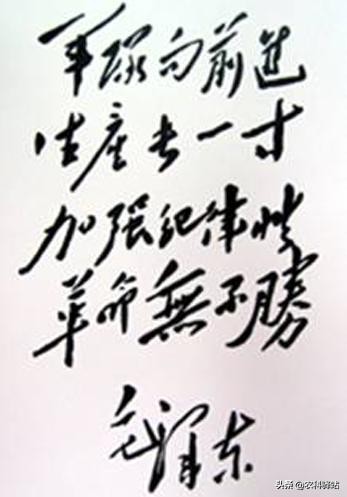 军队向前進
生産长一寸
加强纪律性
革命無不勝
毛泽东
头条 @农科驿站